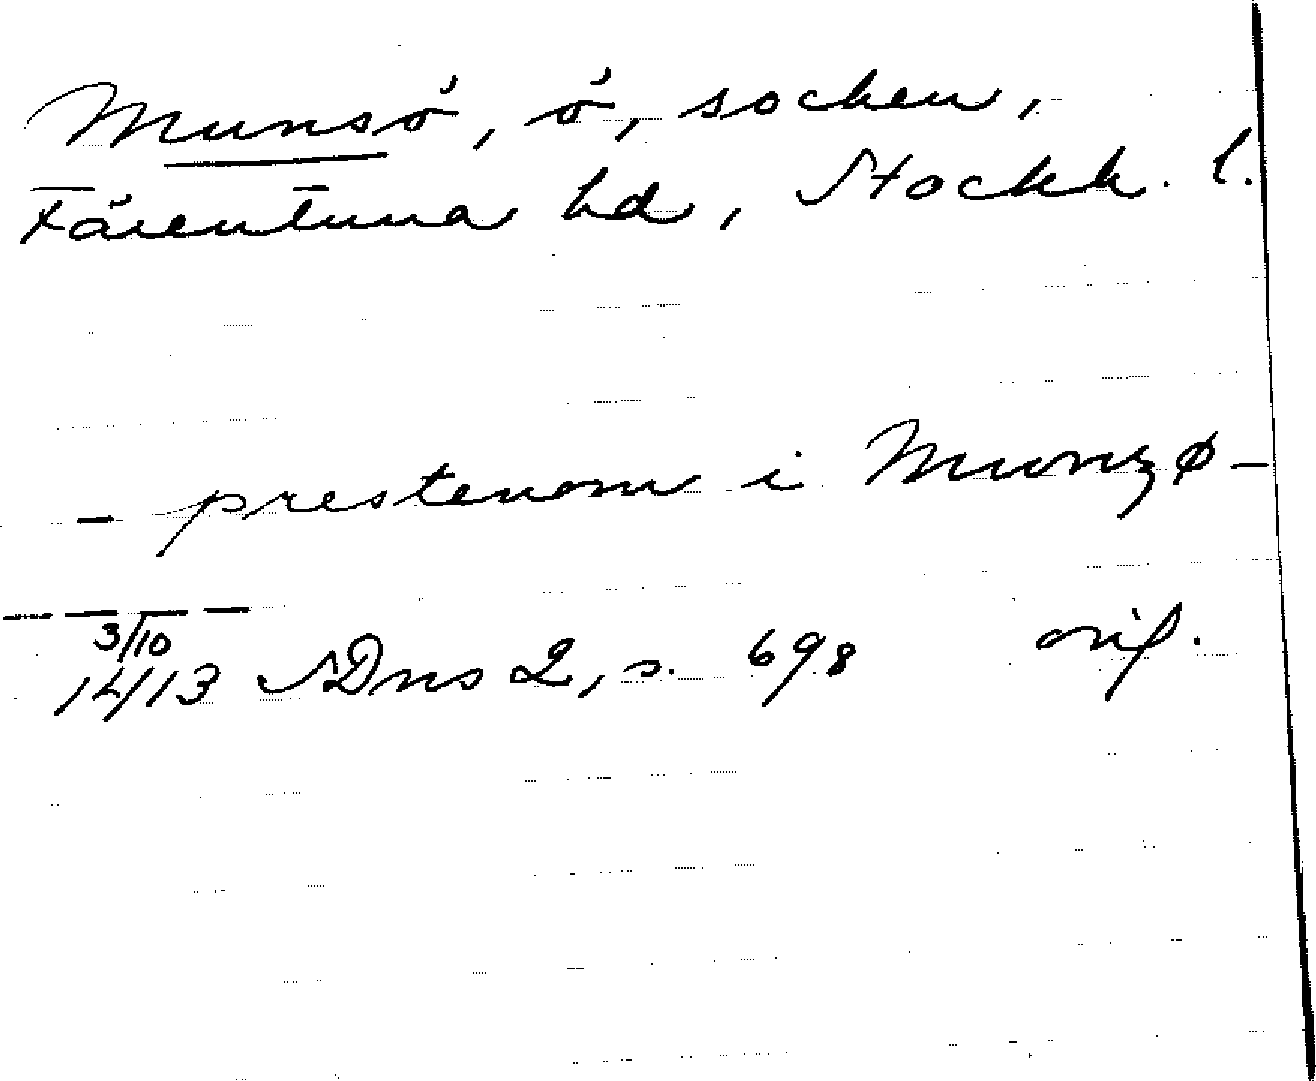 Munsö, ö, socken,
Färentuna hd, Stockh. l.
— prestenom i Munzø —
— — — —
3/10
1413 SDns 2, s. 698 orig.